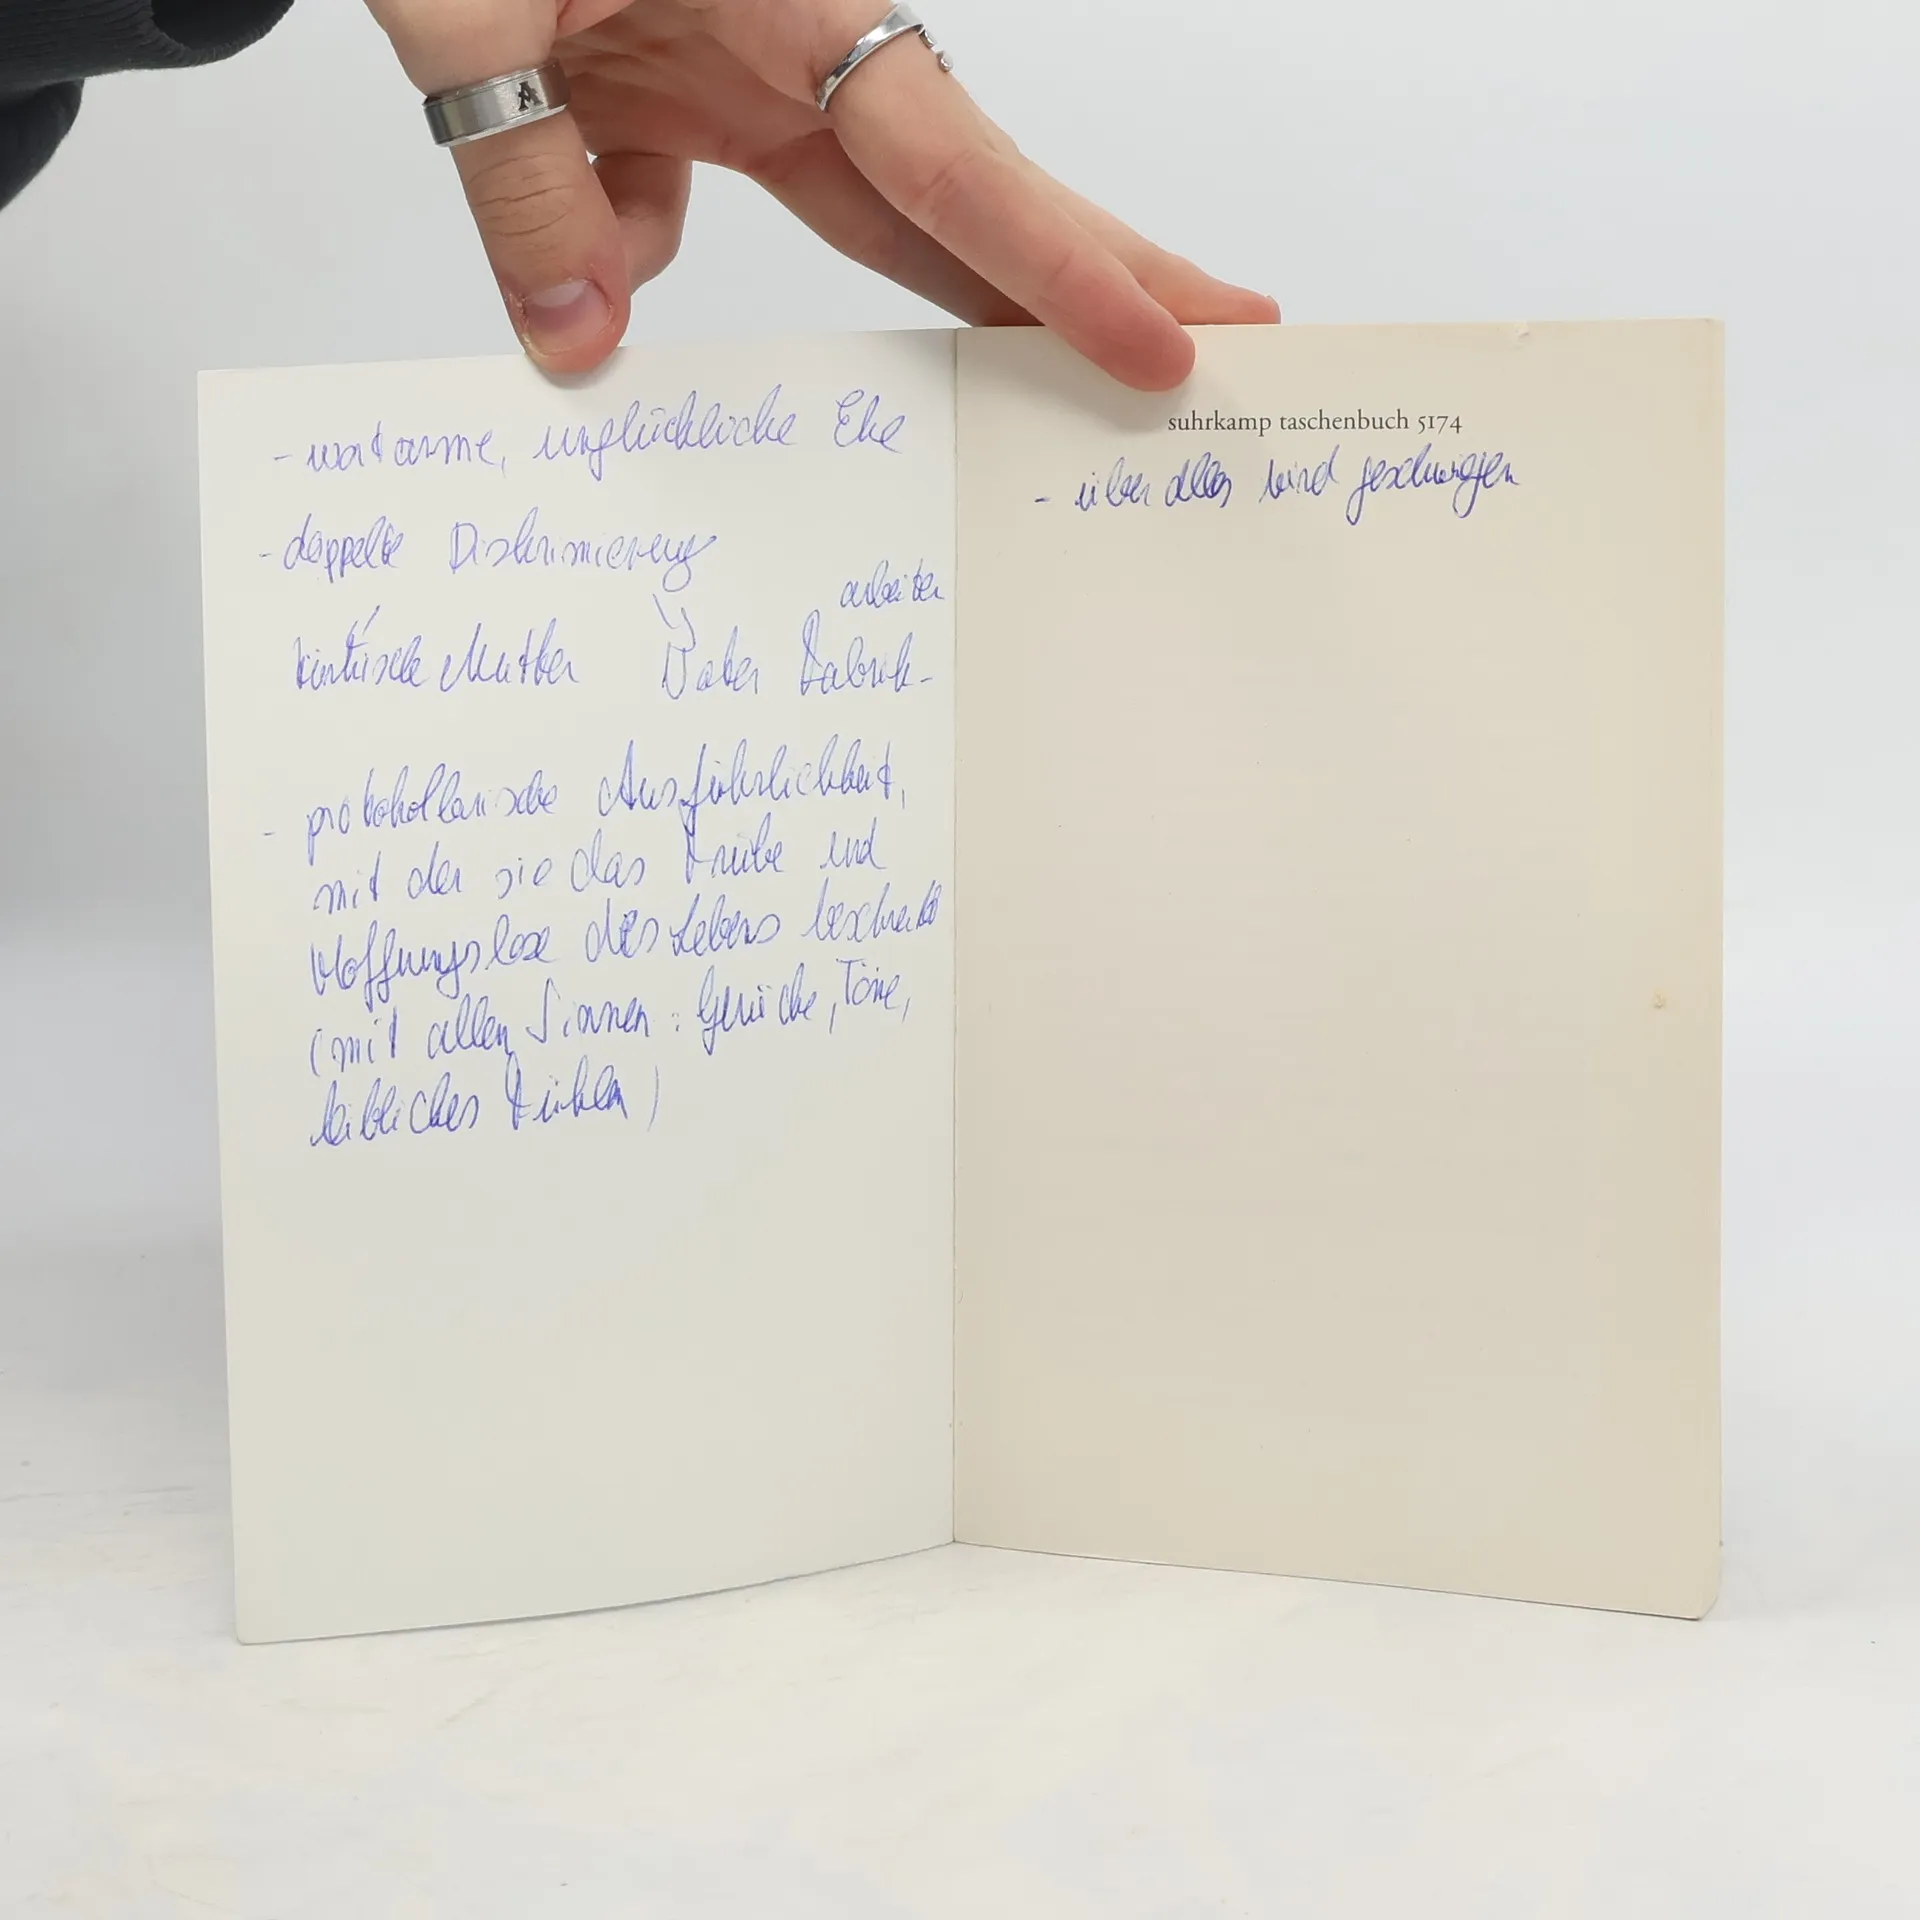 - wortarme, unglückliche Ehe
- doppelte Diskrimierung
türkische Mutter Vater Fabrik-
arbeiter
- protokollarische Ausführlichkeit,
mit der sie das Trübe und
Hoffnungslose des Lebens beschreibt
(mit allen Sinnen : Gerüche, Töne,
leibliches Fühlen)
suhrkamp taschenbuch 5174
- über alles wird geschwiegen
A